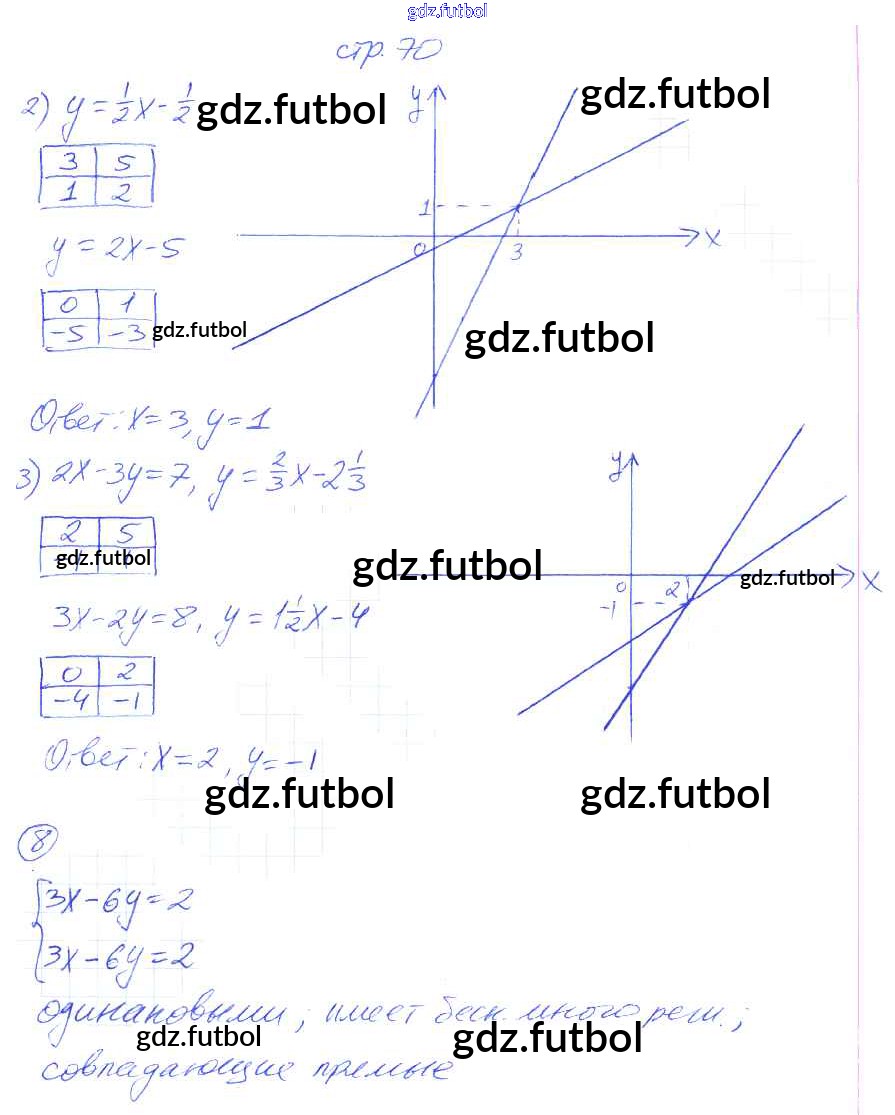 gdz.futbol
стр. 70
2) y = 1/2 x - 1/2 gdz.futbol
y
gdz.futbol
3 5
1 2
1
0 3 x
y = 2x - 5
0 1
-5 -3 gdz.futbol
gdz.futbol
Ответ: x = 3, y = 1
3) 2x - 3y = 7, y = 2/3 x - 2 1/3
y
2 5
gdz.futbol
gdz.futbol
gdz.futbol
0 2 x
-1
3x - 2y = 8, y = 1 1/2 x - 4
0 2
-4 -1
Ответ: x = 2, y = -1
gdz.futbol gdz.futbol
8
{3x - 6y = 2
3x - 6y = 2
одинаковыми; имеет беск. много реш.;
gdz.futbol gdz.futbol
совпадающие прямые